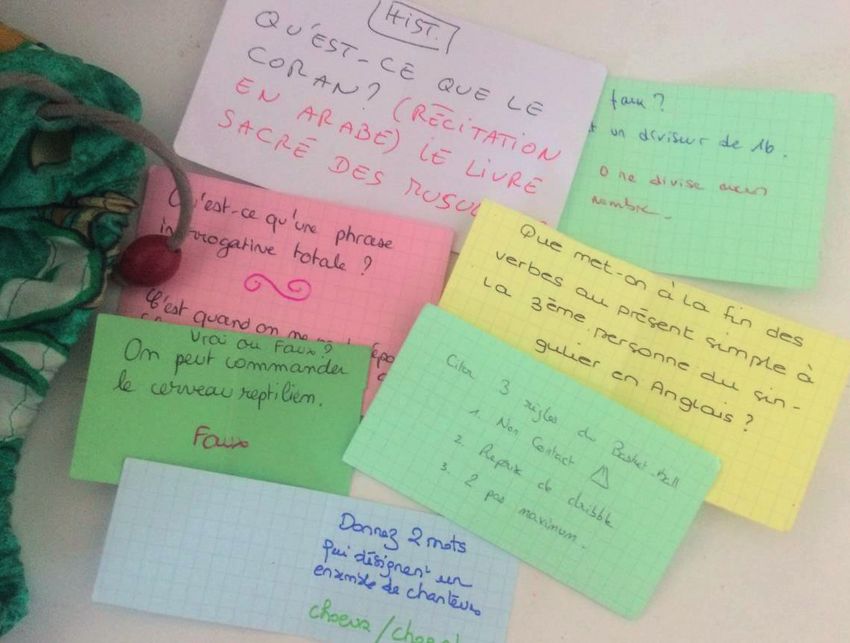 HIST.
QU'EST-CE QUE LE
CORAN? (RÉCITATION
EN ARABE) LE LIVRE
SACRÉ DES MUSUL
faux ?
un diviseur de 16.
O ne divise aucun
nombre.
Qu'est-ce qu'une phrase
interrogative totale ?
C'est quand on
Que met-on à la fin des
verbes au présent simple à
la 3ème personne du sin-
gulier en Anglais ?
Vrai ou Faux ?
On peut commander
le cerveau reptilien.
Faux
Citer 3 règles du Basket-ball
1. Non Contact
2. Reprise de dribble
3. 2 pas maximum.
Donnez 2 mots
qui désignent un
ensemble de chanteurs
choeur /